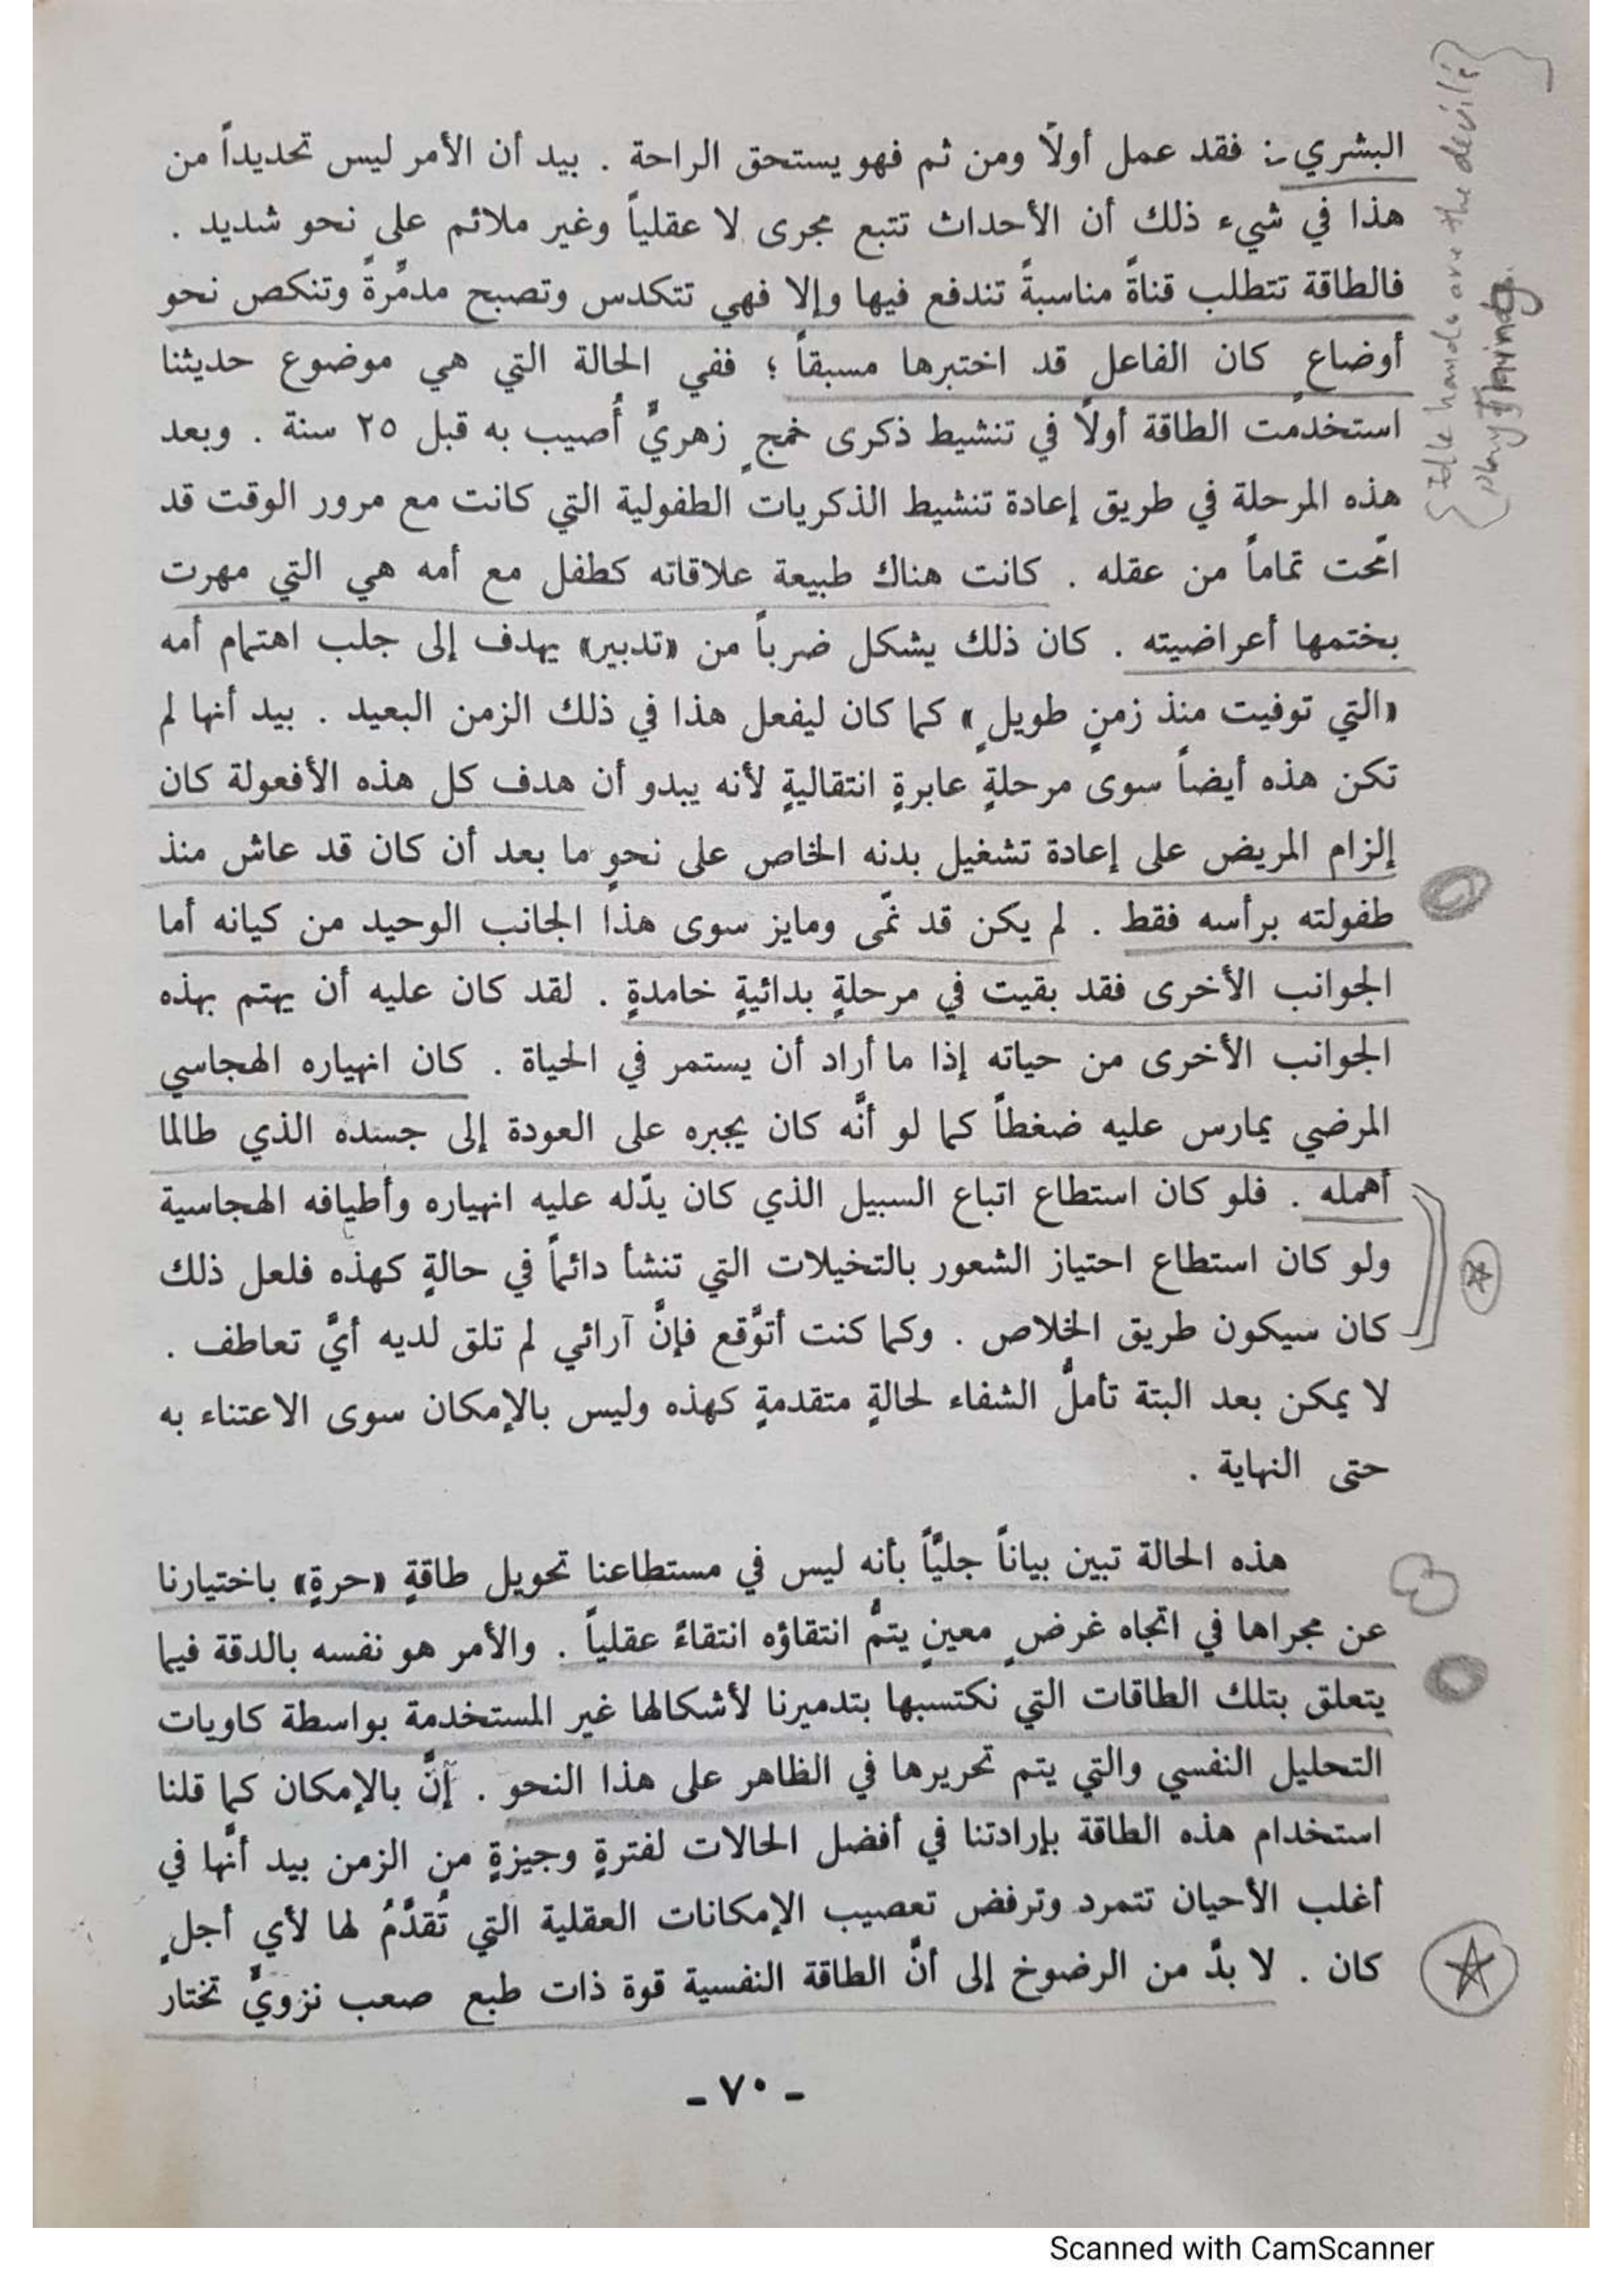 البشري -: فقد عمل أولًا ومن ثم فهو يستحق الراحة . بيد أن الأمر ليس تحديداً من
هذا في شيء ذلك أن الأحداث تتبع مجرى لا عقلياً وغير ملائم على نحو شديد .
فالطاقة تتطلب قناةً مناسبةً تندفع فيها وإلا فهي تتكدس وتصبح مدمِّرةً وتنكص نحو
أوضاعٍ كان الفاعل قد اختبرها مسبقاً ؛ ففي الحالة التي هي موضوع حديثنا
استخدمت الطاقة أولًا في تنشيط ذكرى خمجٍ زهريٍّ أُصيب به قبل ٢٥ سنة . وبعد
هذه المرحلة في طريق إعادة تنشيط الذكريات الطفولية التي كانت مع مرور الوقت قد
امّحت تماماً من عقله . كانت هناك طبيعة علاقاته كطفل مع أمه هي التي مهرت
بختمها أعراضيته . كان ذلك يشكل ضرباً من «تدبير» يهدف إلى جلب اهتمام أمه
«التي توفيت منذ زمنٍ طويلٍ» كما كان ليفعل هذا في ذلك الزمن البعيد . بيد أنها لم
تكن هذه أيضاً سوى مرحلةٍ عابرةٍ انتقاليةٍ لأنه يبدو أن هدف كل هذه الأفعولة كان
إلزام المريض على إعادة تشغيل بدنه الخاص على نحوٍ ما بعد أن كان قد عاش منذ
طفولته برأسه فقط . لم يكن قد نمّى ومايز سوى هذا الجانب الوحيد من كيانه أما
الجوانب الأخرى فقد بقيت في مرحلةٍ بدائيةٍ خامدةٍ . لقد كان عليه أن يهتم بهذه
الجوانب الأخرى من حياته إذا ما أراد أن يستمر في الحياة . كان انهياره الهجاسي
المرضي يمارس عليه ضغطاً كما لو أنَّه كان يجبره على العودة إلى جسده الذي طالما
أهمله . فلو كان استطاع اتباع السبيل الذي كان يدّله عليه انهياره وأطيافه الهجاسية
ولو كان استطاع احتياز الشعور بالتخيلات التي تنشأ دائماً في حالةٍ كهذه فلعل ذلك
كان سيكون طريق الخلاص . وكما كنت أتوَّقع فإنَّ آرائي لم تلق لديه أيَّ تعاطف .
لا يمكن بعد البتة تأملُّ الشفاء لحالةٍ متقدمةٍ كهذه وليس بالإمكان سوى الاعتناء به
حتى النهاية .
هذه الحالة تبين بياناً جليَّاً بأنه ليس في مستطاعنا تحويل طاقةٍ «حرةٍ» باختيارنا
عن مجراها في اتجاه غرضٍ معينٍ يتمُّ انتقاؤه انتقاءً عقلياً . والأمر هو نفسه بالدقة فيما
يتعلق بتلك الطاقات التي نكتسبها بتدميرنا لأشكالها غير المستخدمة بواسطة كاويات
التحليل النفسي والتي يتم تحريرها في الظاهر على هذا النحو . إنَّ بالإمكان كما قلنا
استخدام هذه الطاقة بإرادتنا في أفضل الحالات لفترةٍ وجيزةٍ من الزمن بيد أنَّها في
أغلب الأحيان تتمرد وترفض تعصيب الإمكانات العقلية التي تُقدَّمُ لها لأي أجلٍ
كان . لا بدَّ من الرضوخ إلى أنَّ الطاقة النفسية قوة ذات طبع صعب نزويٍّ تختار
- ٧٠ -
Idle hands are the devil's
play things.
Scanned with CamScanner